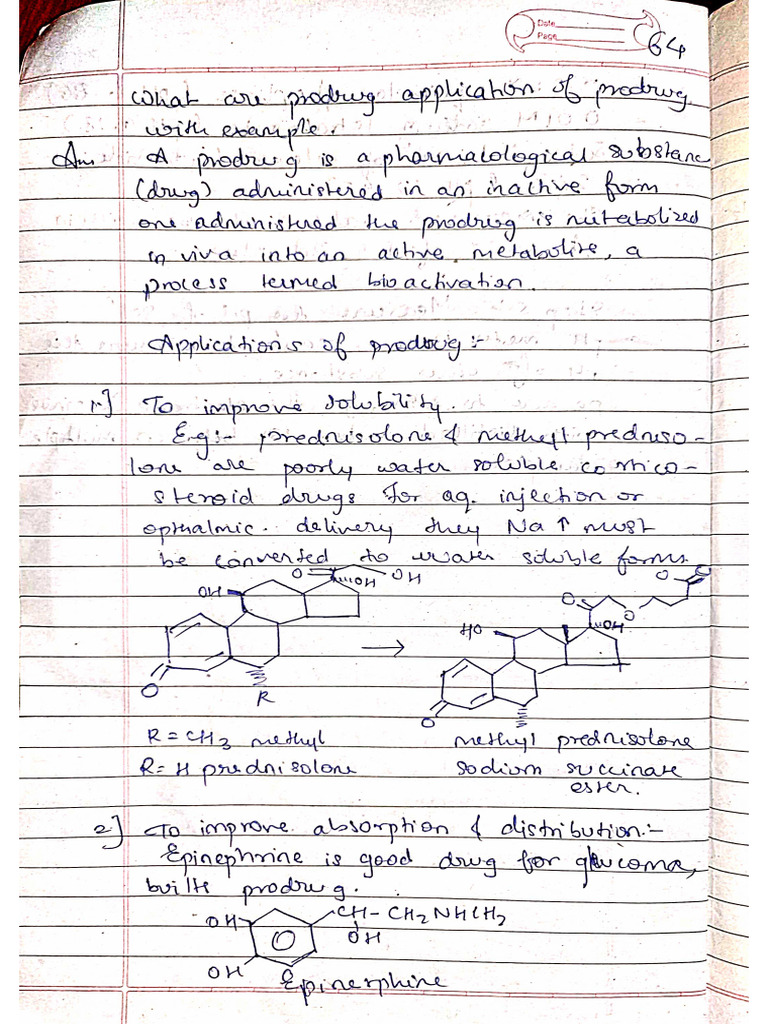 Date
Page 64
What are prodrug application of prodrug
with example.
Ans A prodrug is a pharmacological substanc
(drug) administered in an inactive form
one administered the prodrug is mitabolized
in viva into an active metabolite, a
process termed bioactivation.
Applications of prodrug :-
1.] To improve solubility.
E.g:- prednisolone & methyl predniso-
lone are poorly water soluble cortico-
steroid drugs for aq. injection or
opthalmic. delivery they Na↑ must
be converted to water soluble forms
O OH OH
OH
O
R
→
O O O
HO OH
O
R = CH3 methyl methyl prednisolone
R = H prednisolone sodium succinate
ester.
2] To improve absorption & distribution:-
Epinephrine is good drug for glucoma,
built prodrug.
OH CH - CH2NHCH2
OH
OH
Epinerphine